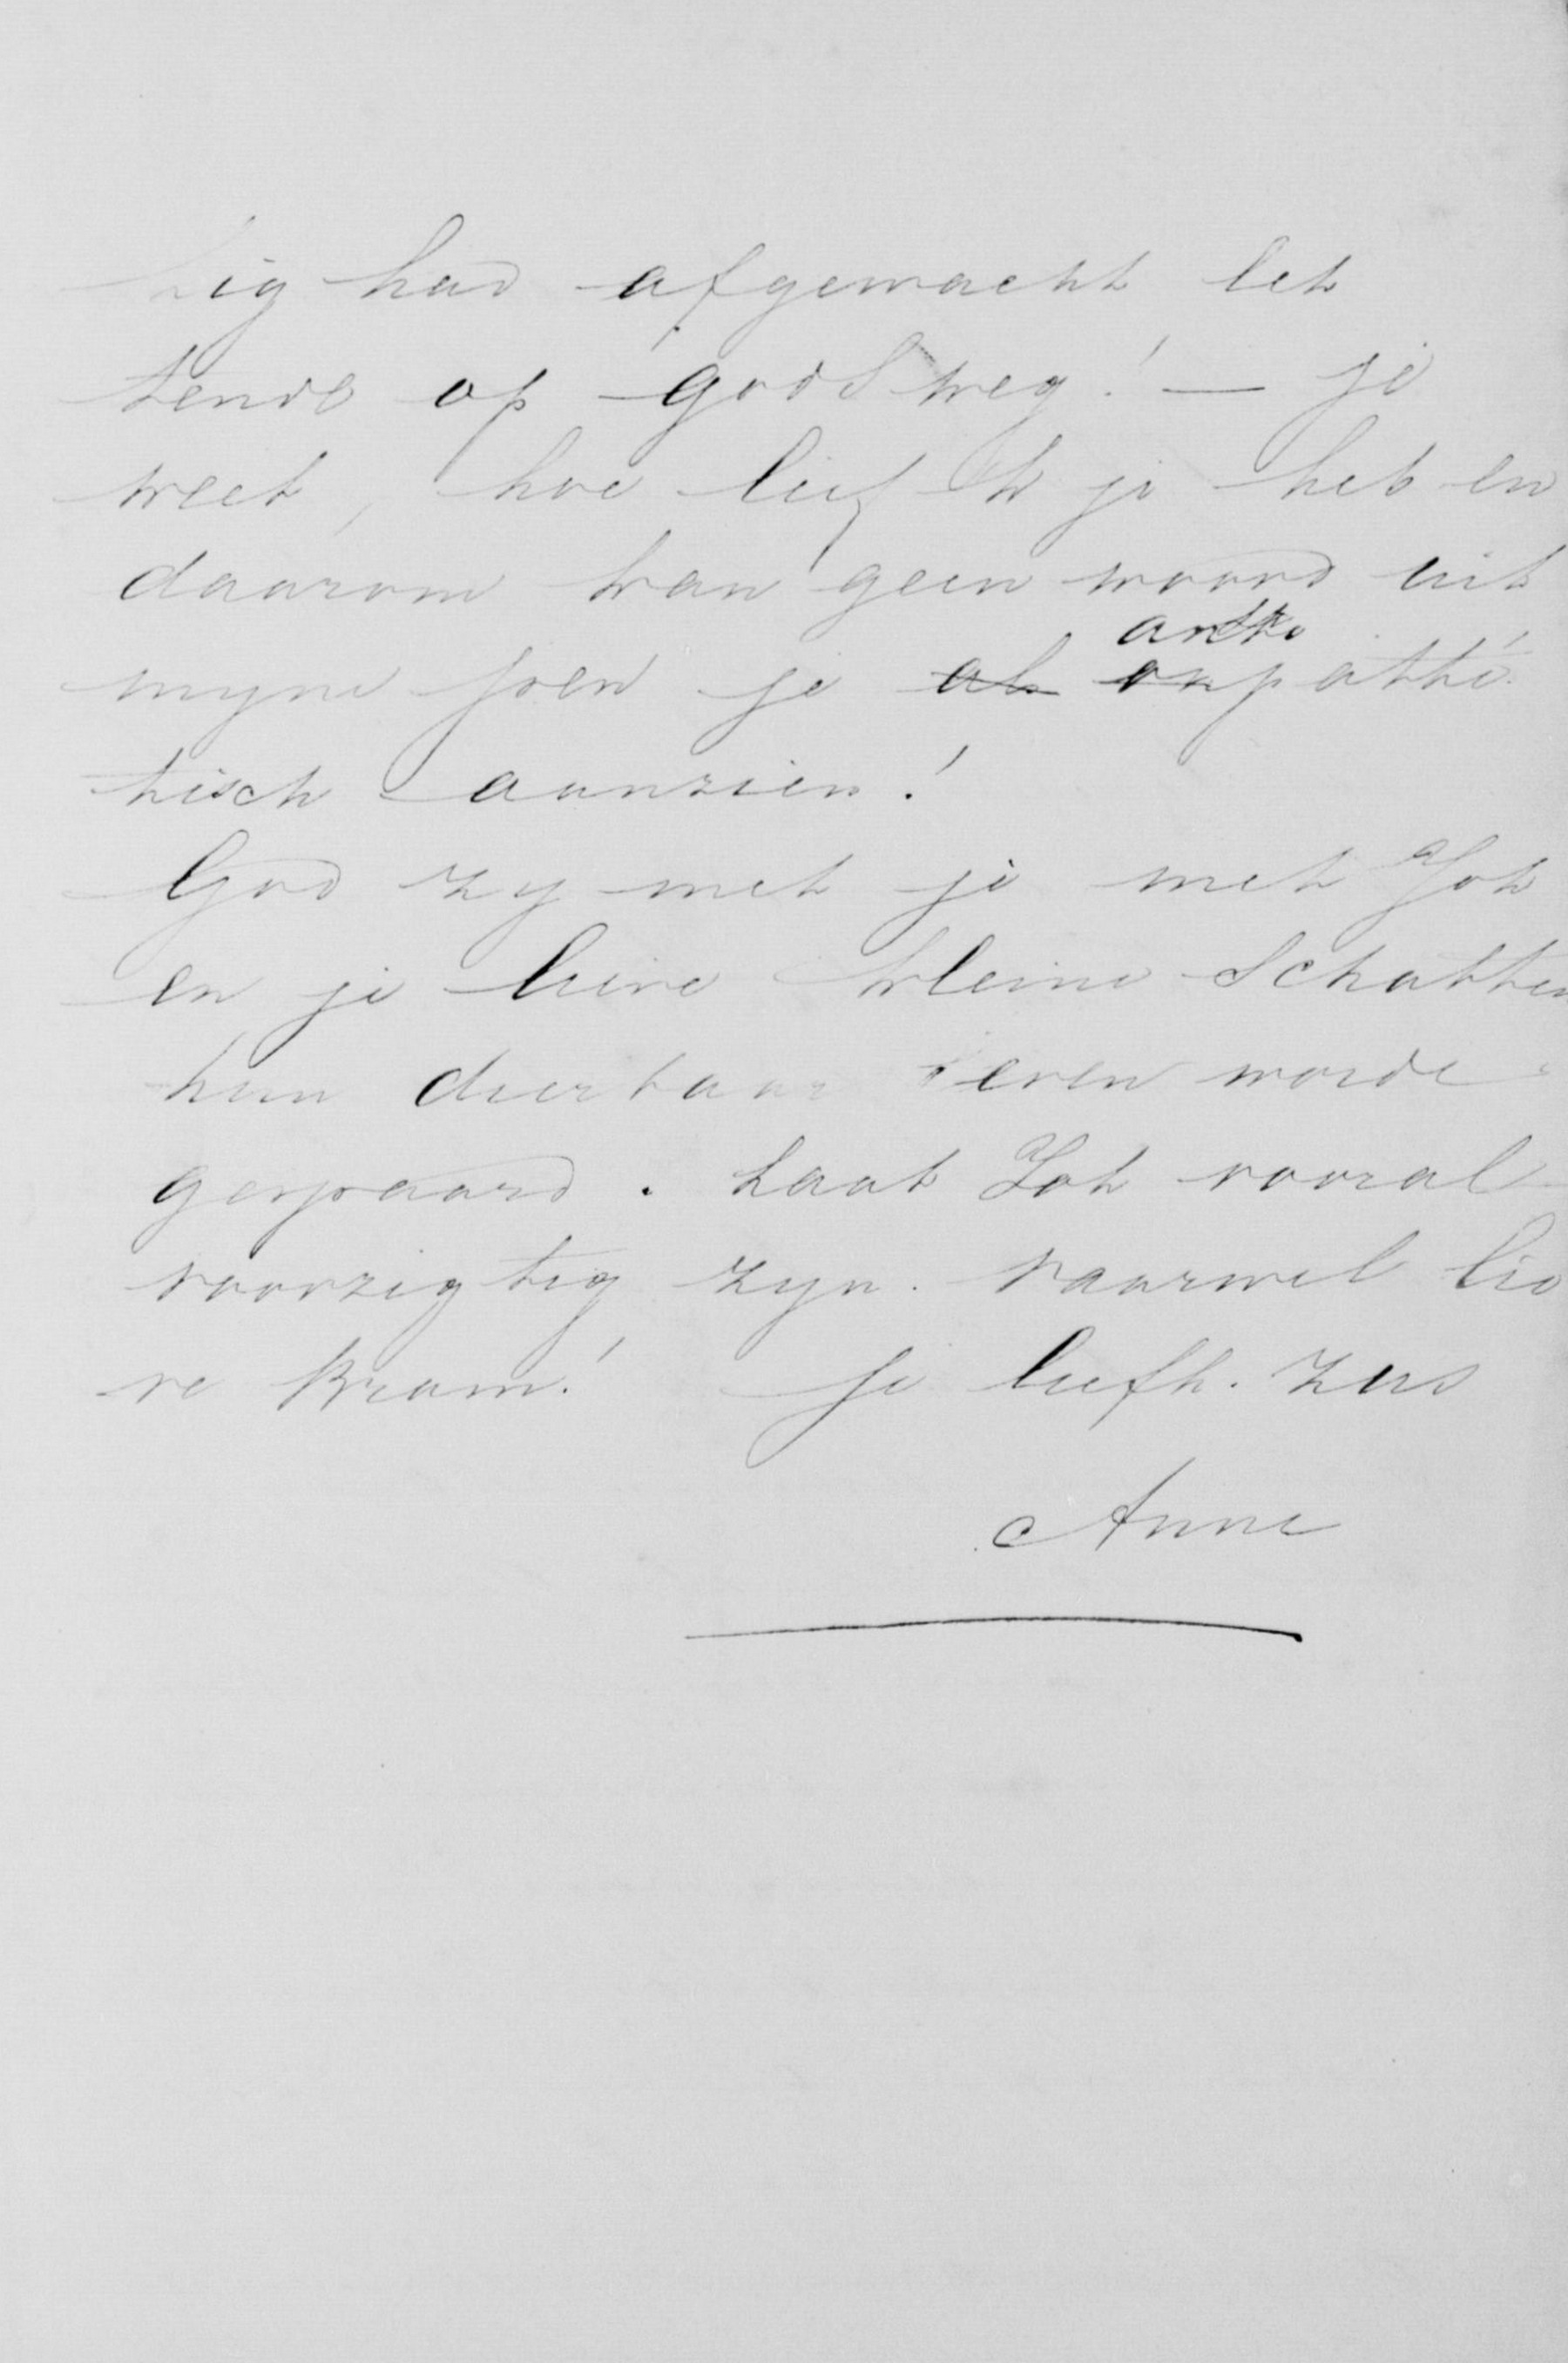 tig had afgewacht let
tende op Gods weg! — je
weet, hoe lief ik je heb en
daarom kan geen woord uit
myne pen je als anti
onpatthé
tisch aanzien!
God zy met je met Joh
en je lieve kleine schatten
hun dierbaar leven worde
gespaard. Laat Joh vooral
voorzigtig zyn. Vaarwel lie
ve Bram! Je liefh. zus
Anne